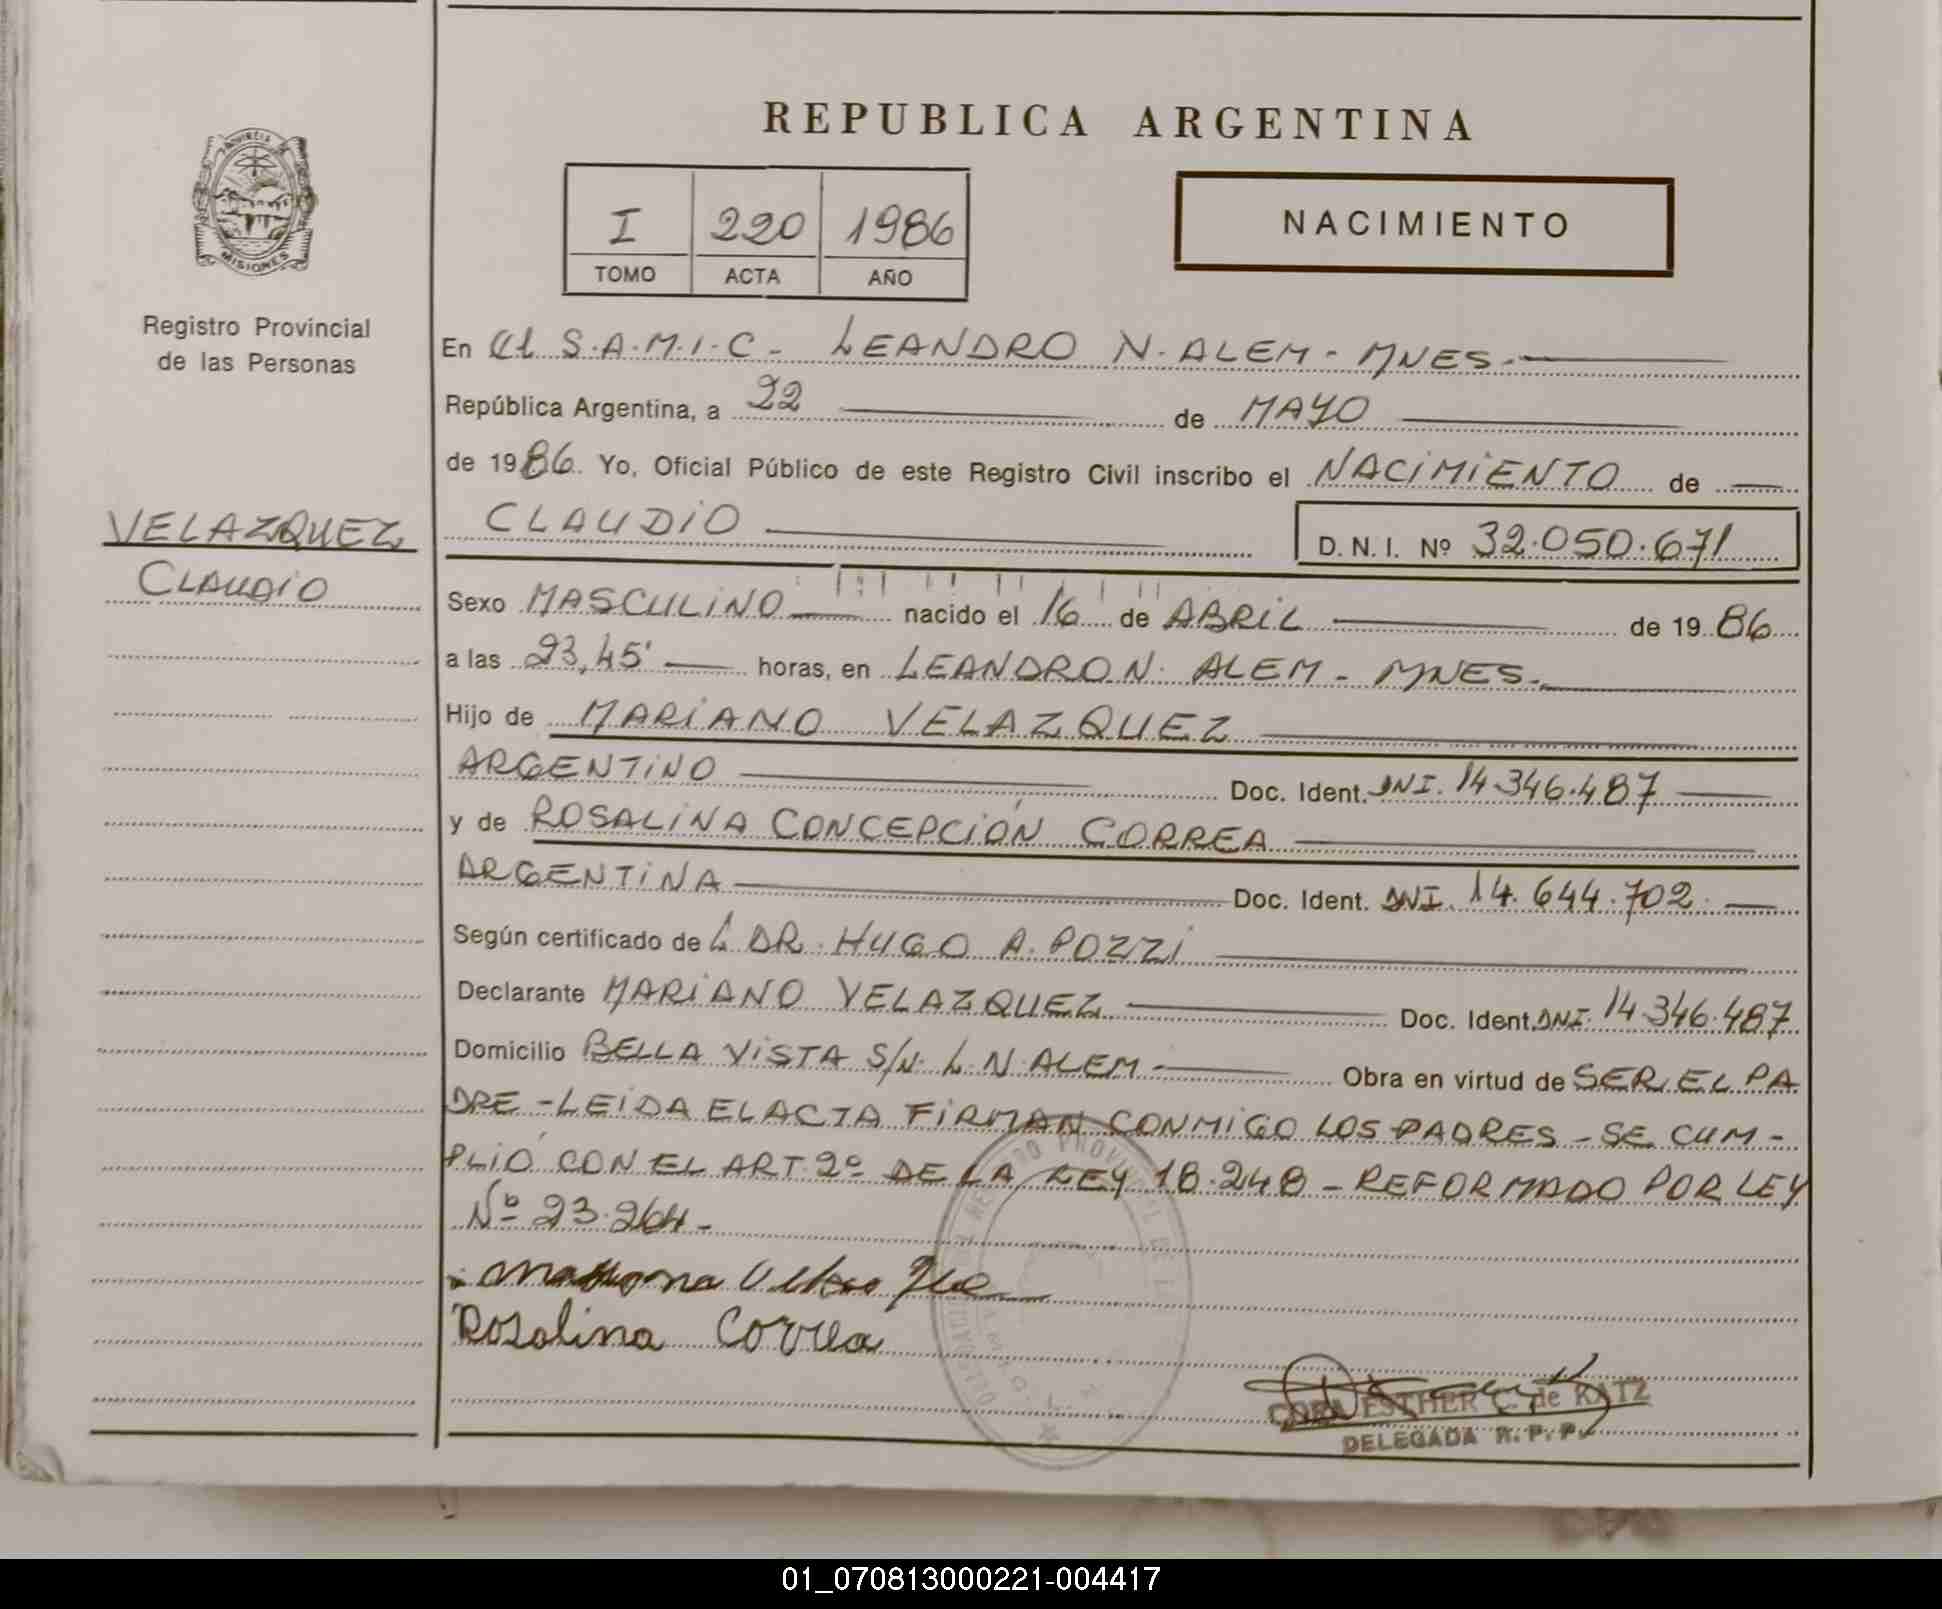 REPUBLICA ARGENTINA
PROVINCIA
MISIONES
Registro Provincial
de las Personas
I 220 1986
TOMO ACTA AÑO
NACIMIENTO
En el S.A.M.I.C - LEANDRO N. ALEM - MNES -
República Argentina, a 22 de MAYO
de 1986. Yo, Oficial Público de este Registro Civil inscribo el NACIMIENTO de
VELAZQUEZ
CLAUDIO
CLAUDIO D.N.I. Nº 32.050.671
Sexo MASCULINO nacido el 16 de ABRIL de 1986
a las 23,45' horas, en LEANDRO N. ALEM - MNES -
Hijo de MARIANO VELAZQUEZ
ARGENTINO Doc. Ident. DNI. 14.346.487
y de ROSALINA CONCEPCIÓN CORREA
ARGENTINA Doc. Ident. DNI. 14.644.702.
Según certificado de L DR. HUGO A. POZZI
Declarante MARIANO VELAZQUEZ Doc. Ident. DNI. 14.346.487
Domicilio BELLA VISTA S/N. L. N. ALEM - Obra en virtud de SER EL PA
DRE - LEIDA EL ACTA FIRMAN CONMIGO LOS PADRES - SE CUM -
PLIÓ CON EL ART. 2º DE LA LEY 18.248 - REFORMADO POR LEY
Nº 23.264 -
Rosalina Correa
CORA ESTHER C. de KATZ
DELEGADA R. P. P.
01_070813000221-004417